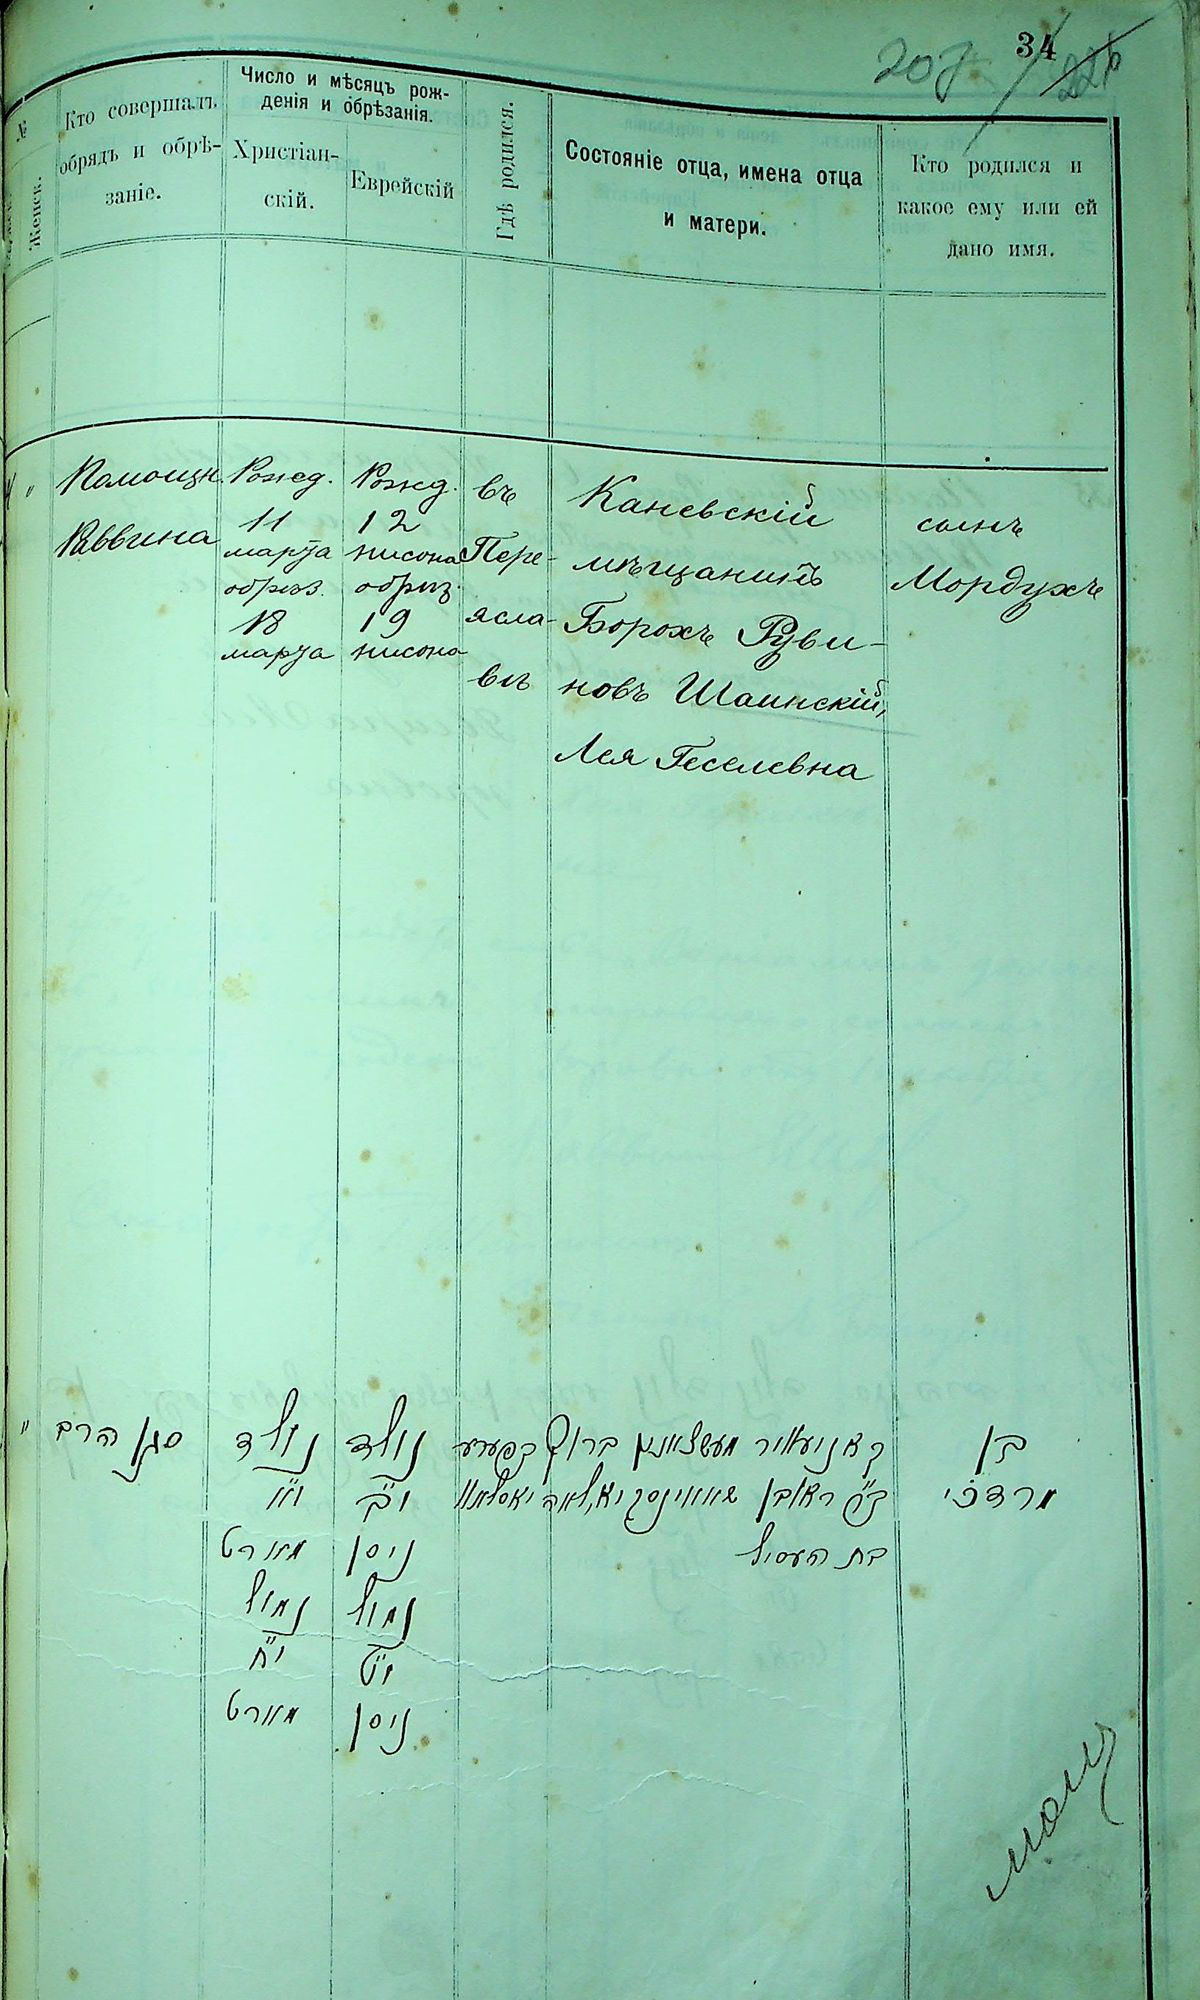 207
34
226
№
Женск.
Кто совершалъ
обрядъ и обрѣ-
заніе.
Число и мѣсяцъ рож-
денія и обрѣзанія.
Христіан-
скій.
Еврейскій
Гдѣ родился.
Состояніе отца, имена отца
и матери.
Кто родился и
какое ему или ей
дано имя.
"
Помощн.
Раввина
Рожд.
11
марта
обрѣз.
18
марта
Рожд.
12
нисона
обрѣз.
19
нисона
въ
Пере-
ясла-
влѣ
Каневскій
мѣщанинъ
Борохъ Руви-
новъ Шаинскій,
Лея Геселевна
сынъ
Мордухъ
"
סגן הרב
נולד
י״א
מארט
נמול
י״ח
מארט
נולד
י״ב
ניסן
נמול
י״ט
ניסן
בפערע
יאסלאוו
קאניעווער מעשצאנין ברוך
ב״ר ראובן שאאינסקי ולאה
בת העסיל
בן
מרדכי